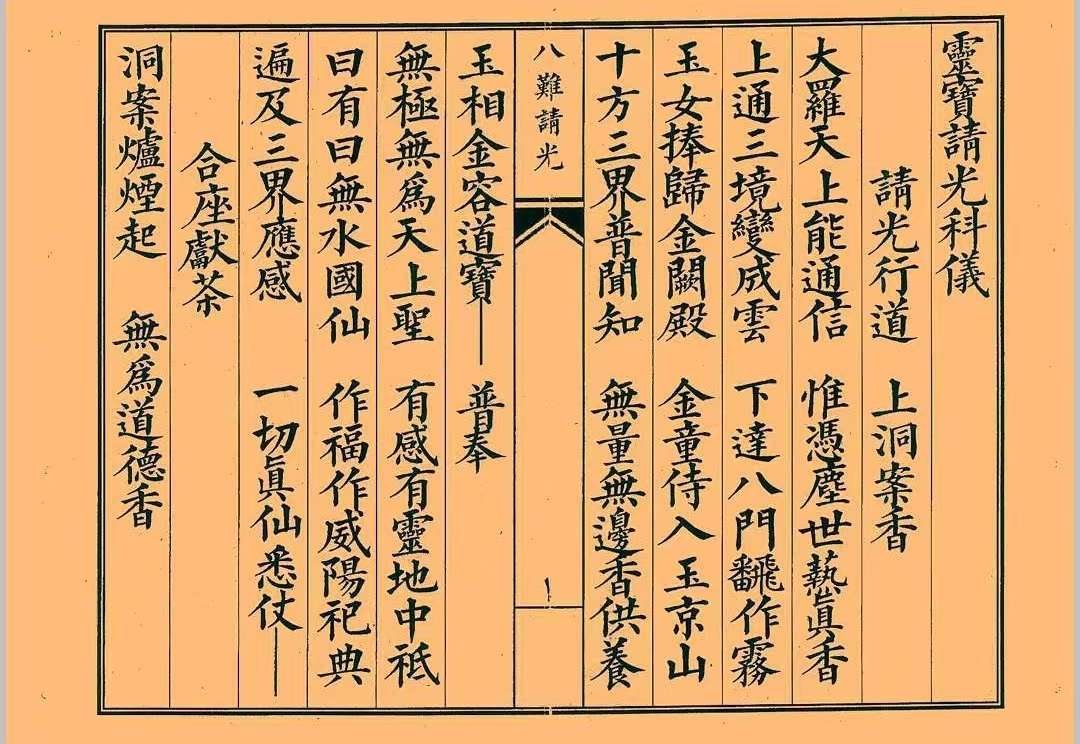 靈寶請光科儀
請光行道　上洞案香
大羅天上能通信　惟憑塵世爇眞香
上通三境變成雲　下達八門飜作霧
玉女捧歸金闕殿　金童侍入玉京山
十方三界普聞知　無量無邊香供養
八難請光
一
玉相金容道寶——　普奉
無極無爲天上聖　有感有靈地中祇
曰有曰無水國仙　作福作威陽祀典
遍及三界應感　一切眞仙悉仗——
合座獻茶
洞案爐煙起　無爲道德香